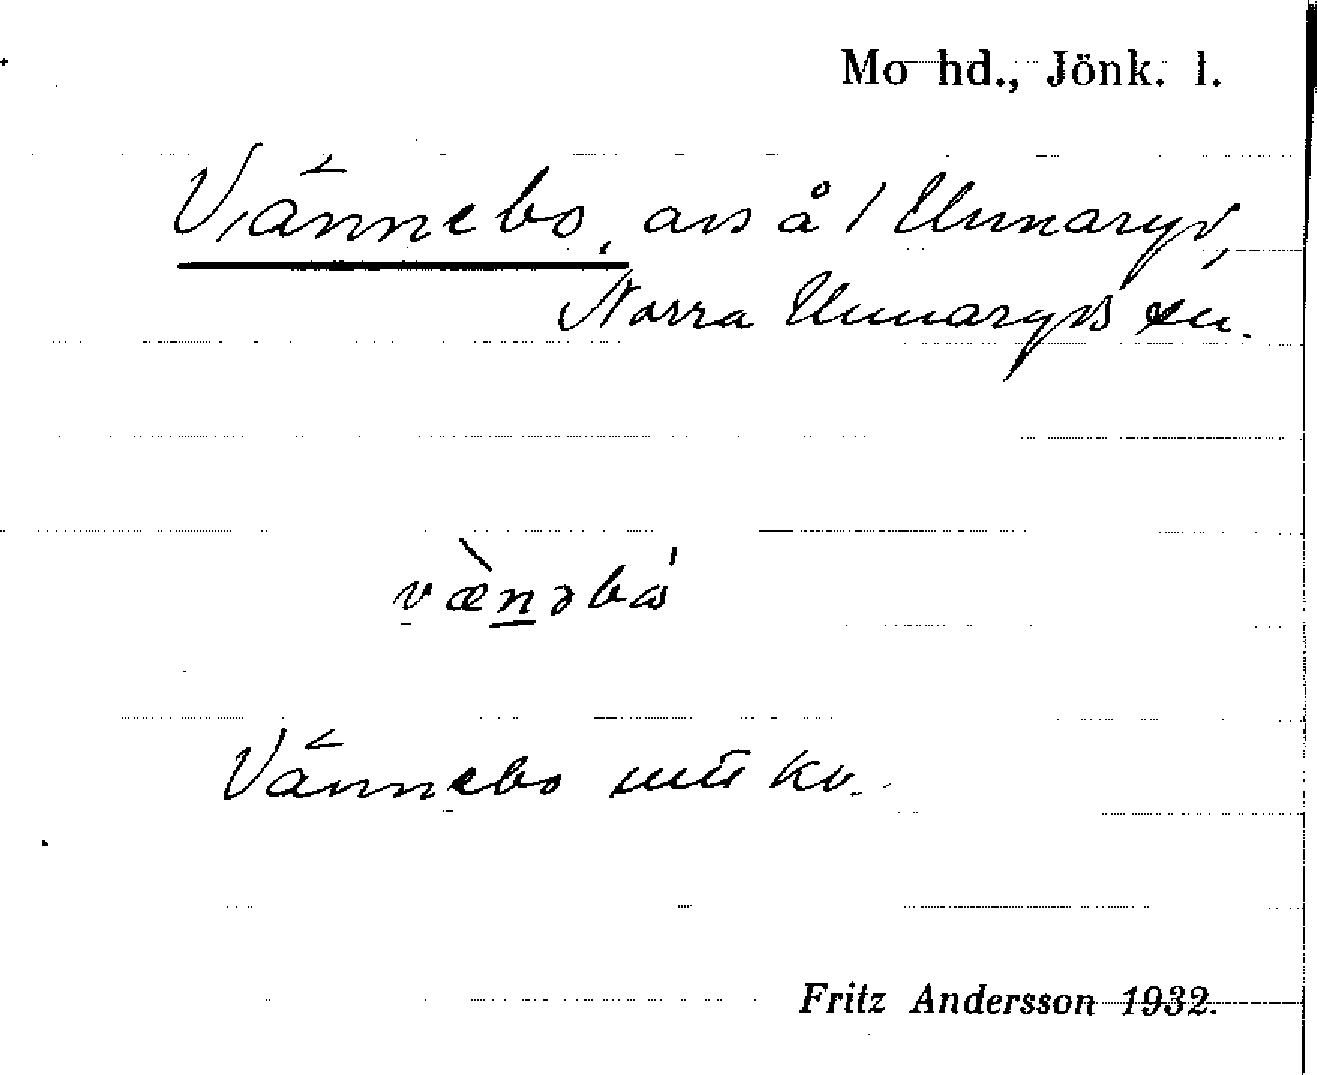 Mo hd., Jönk. l.
Vännebo, avs å 1 Unnaryd,
Norra Unnaryds sn.
vænəbo
Vännebo kv.
Fritz Andersson 1932.